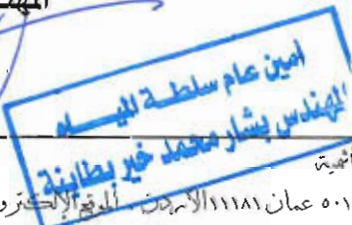 امين عام سلطة المياه
المهندس بشار محمد خير بطاينة
٥٠١ عمان ١١١٨١ الأردن الموقع الإلكترو